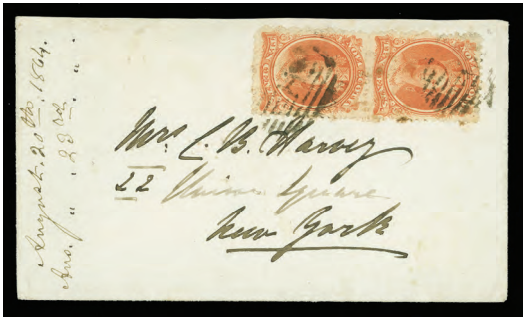 August. 20th. 1864.
Ans. " 23rd " "
Mrs. C. B. Harvey
22 Union Square
New York